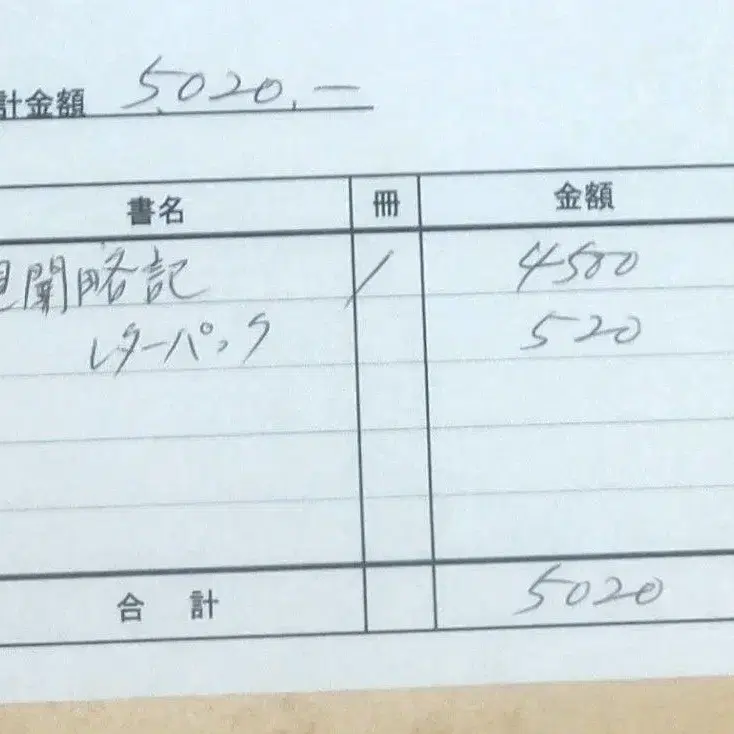 計金額 5,020.—
書名 冊 金額
見聞略記 1 4500
レターパック 520
合計 5020